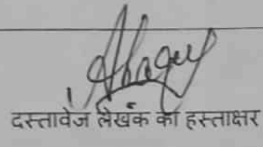 दस्तावेज लेखक का हस्ताक्षर